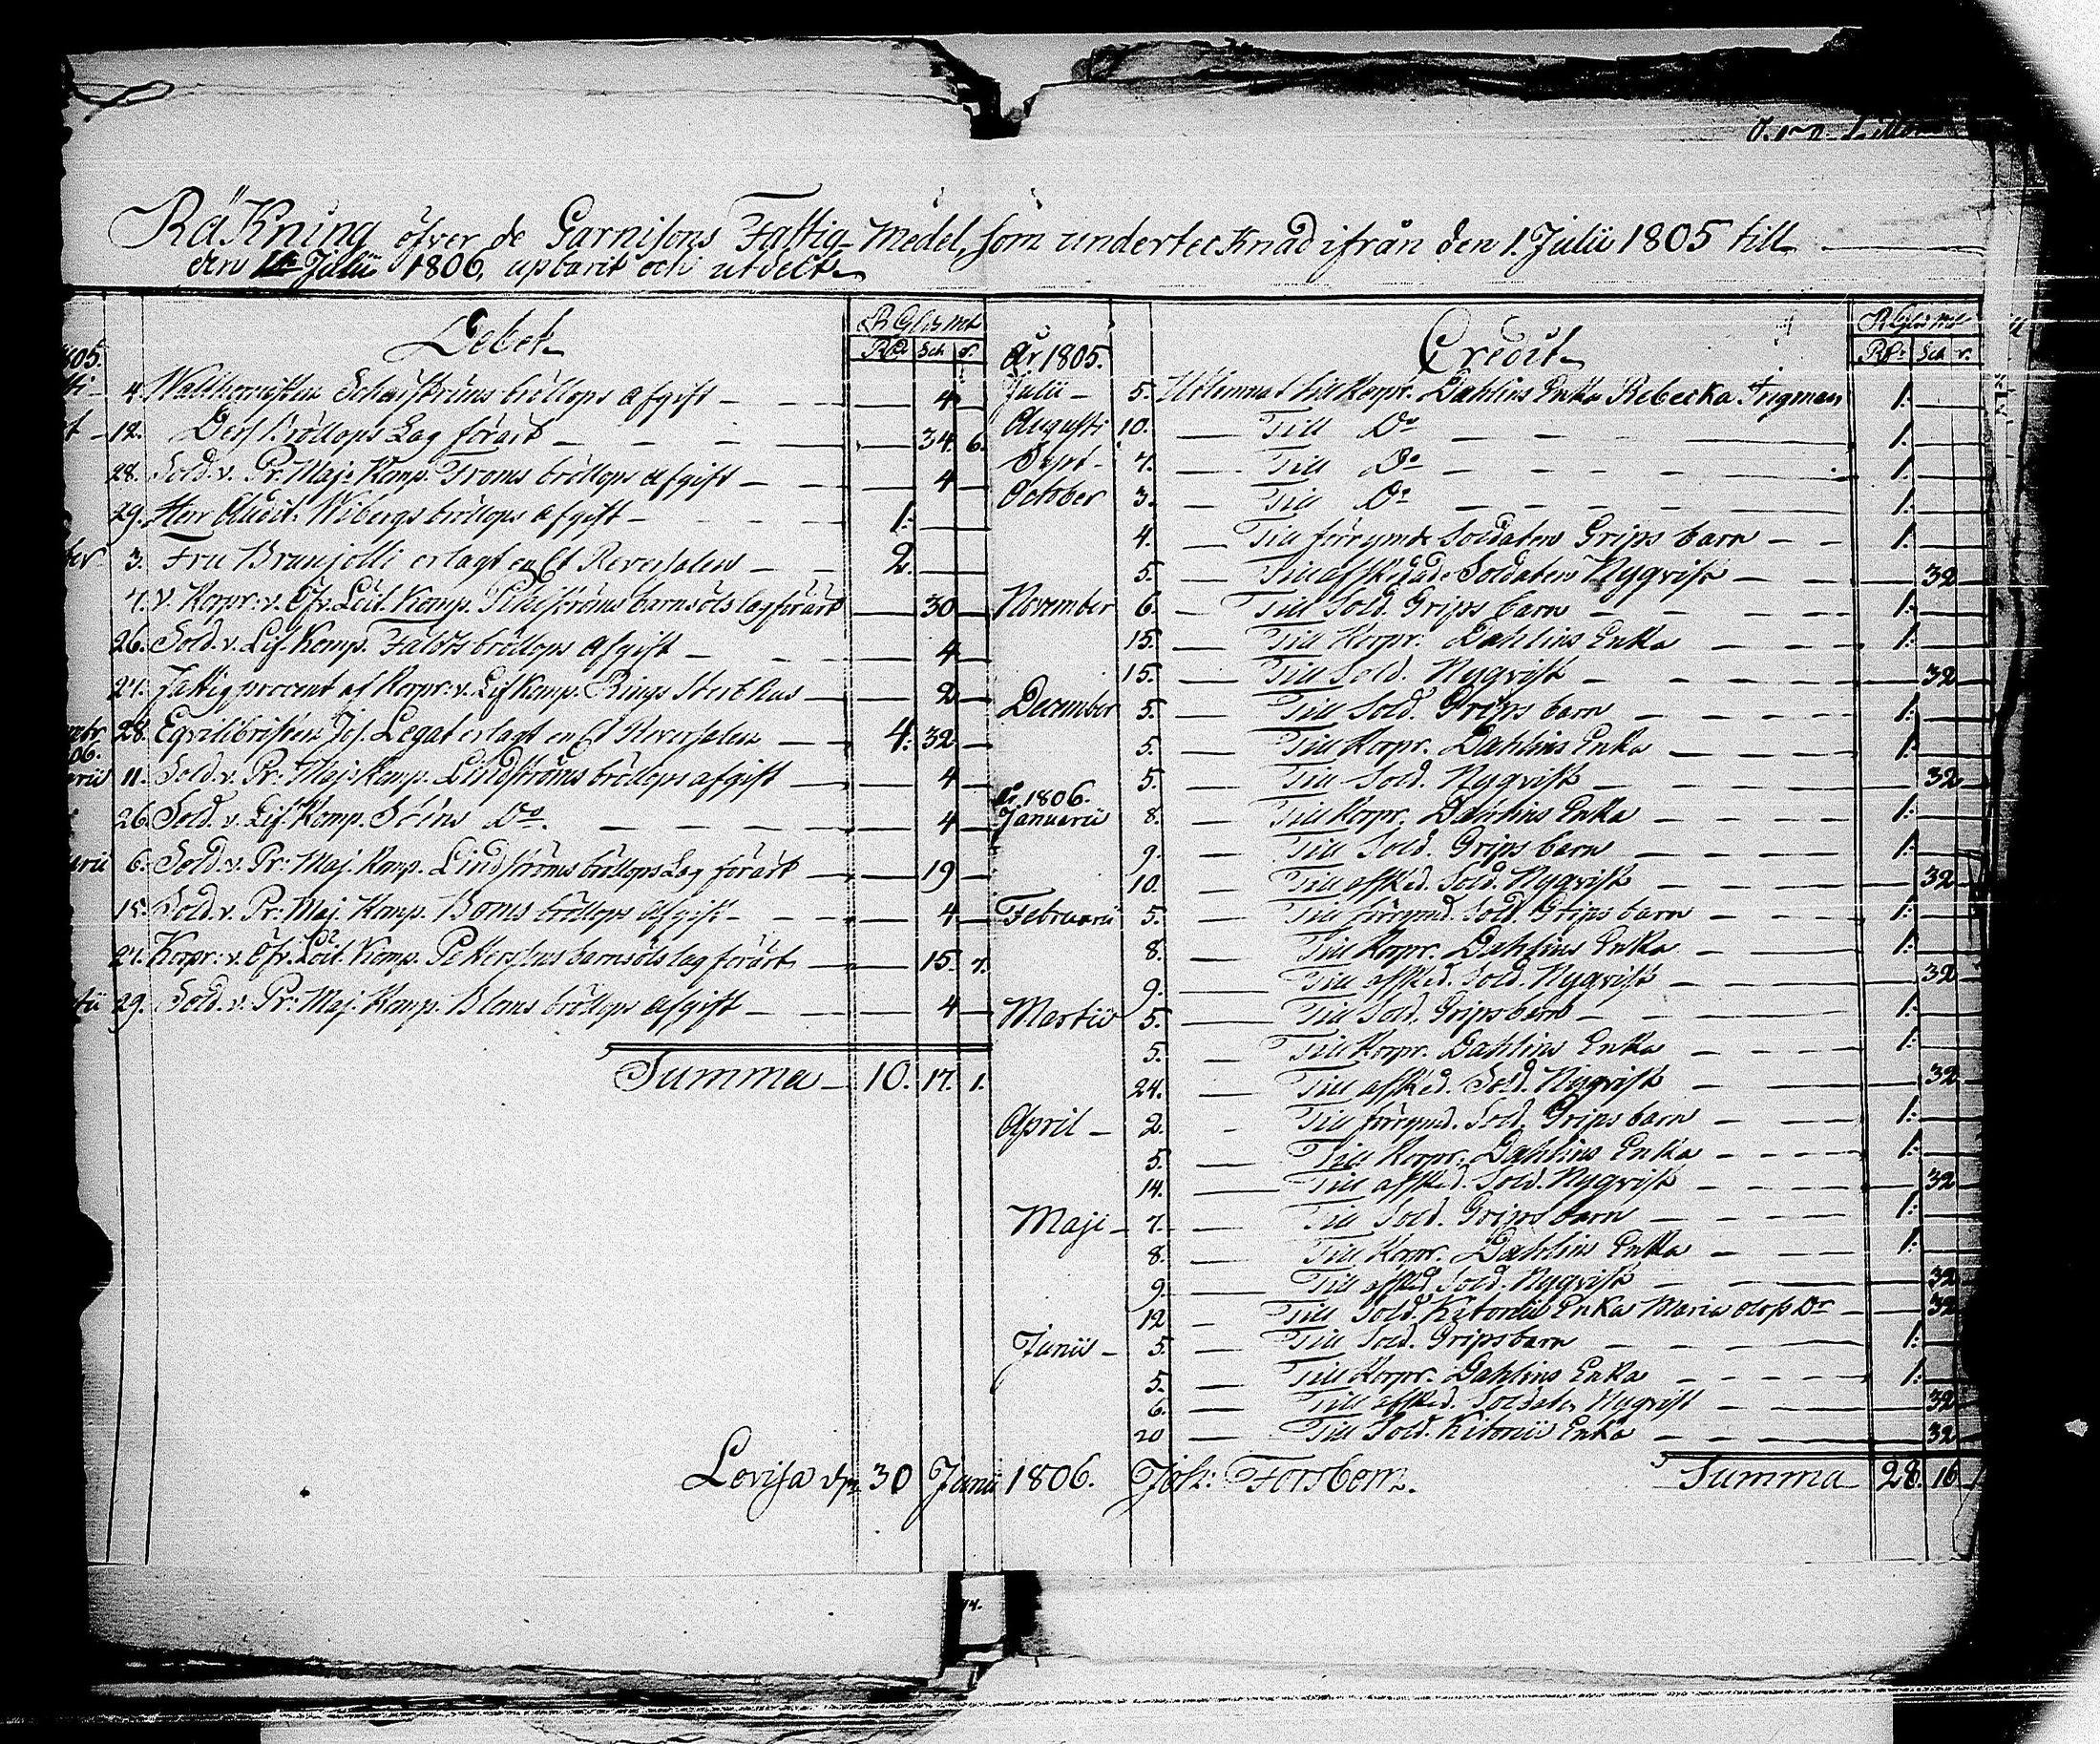 Räkning öfver de Garnisons Fattig-Medel, som undertecknad ifrån den 1. Julii 1805 till
den 1. Julii 1806, upburit och utdelt
Debet
R Glds Mt
Rd Sch r.
805.
4. Walthornisten bröllops Afgift 4
12. Dess Bröllops Lag förärt 34. 6.
28. Sold. v. Pr. Maj:s Komp. Froms bröllops Afgift 4
29. Herr Audit. Wibergs bröllops Afgift 1.
ber 3. Fru erlagt en Reversalen 2.
7. v. Korpr. v. Öfv. Löit. Komp. barnsöls lag förärt 30
26. Sold. v. Lif Komp. Fäldts bröllops Afgift 4
27. Fattig procent af Korpr. v. Lif Komp. Rings Sterbhus 2
28. Eqvilibristen Jos. Legat erlagt en Reversalen 4. 32
06.
arii 11. Sold. v. Pr. Maj:s Komp. Lindströms bröllops afgift 4
26. Sold. v. Lif Komp. Do. 4
arii 6. Sold. v. Pr. Maj. Komp. Lindströms bröllops Lag förärt 19
15. Sold. v. Pr. Maj. Komp. Boms bröllops Afgift 4
27. Korpr. v. Öfv. Löit. Komp. barnsöls lag förärt 15. 7.
tii 29. Sold. v. Pr. Maj. Komp. Bloms bröllops Afgift 4
Summa 10. 17. 1.
Credit
R Glds Mt
Rd. Sch r.
År 1805.
Julii 5. Utlemnat till Korpr. Dahlins Enka Rebecka 1.
Augusti 10. Till Do 1.
Sept. 7. Till Do 1.
October 3. Till Do 1.
4. Till förrymde Soldaten Grips barn 1.
5. Till affskedade Soldaten Nyqvist 32
November 6. Till Sold. Grips barn 1.
15. Till Korpr. Dahlins Enka 1.
15. Till Sold. Nyqvist 32
December 5. Till Sold. Grips barn 1.
5. Till Korpr. Dahlins Enka 1.
5. Till Sold. Nyqvist 32
År 1806.
Januarii 8. Till Korpr. Dahlins Enka 1.
9. Till Sold. Grips barn 1.
10. Till affsked. Sold. Nyqvist 32
Februarii 5. Till förrymd. Sold. Grips barn 1.
8. Till Korpr. Dahlins Enka 1.
9. Till affsked. Sold. Nyqvist 32
Martii 5. Till Sold. Grips barn 1.
5. Till Korpr. Dahlins Enka 1.
24. Till affsked. Sold. Nyqvist 32
April 2. Till förrymd. Sold. Grips barn 1.
5. Till Korpr. Dahlins Enka 1.
14. Till affsked. Sold. Nyqvist 32
Maji 7. Till Sold. Grips barn 1.
8. Till Korpr. Dahlins Enka 1.
9. Till affsked. Sold. Nyqvist 32
12 Till Sold. Kitonii Enka Maria Olofs Dr 32
Junii 5. Till Sold. Grips barn 1.
5. Till Korpr. Dahlins Enka 1.
6. Till affsked. Soldaten Nyqvist 32
20 Till Sold. Kitonii Enka 32
Summa 28. 16
Lovisa den 30 Junii 1806. Joh: Forsbom.